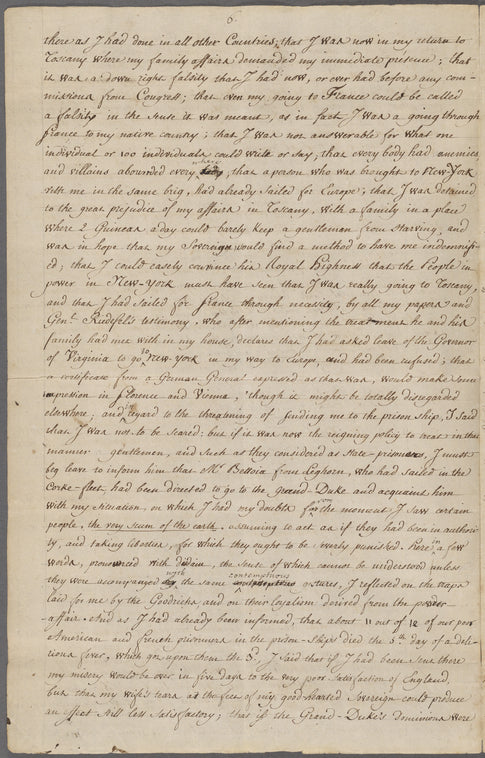 6.
there as I had done in all other Countries; that I was now in my return to
Toscany where my family affairs demanded my immediate presence; that
it was a down right falsity that I had now, or ever had before any com-
missions from Congress; that even my going to France could be called
a falsity in the sense it was meant, as in fact I was a going through
france to my native country; that I was not answerable for what one
individual or 100 individuals could write or say, that every body had enemies
and villains abounded every where; that a person who was brought to New-York
with me in the same brig, had already sailed for Europe; that I was detained
to the great prejudice of my affairs in Toscany, with a family in a place
where 2 Guineas a day could barely keep a gentleman from starving, and
was in hope that my Sovereign would find a method to have me indemnifi-
ed; that I could easely convince his Royal Highness that the People in
power in New-York must have seen that I was really going to Toscany,
and that I had sailed for france through necessity, by all my papers and
Genl. Riedesel's testimony, who after mentioning the treatment he and his
family had met with in my house, declares that I had asked leave of the Governor
of Virginia to go to New-York in my way to Europe, and had been refused; that
a certificate from a German General expressed as that was, would make some
impression in florence and Vienna, though it might be totally disregarded
elsewhere; and regard to the threatening of sending me to the prison ship, I said
that I was not to be scared: but if it was now the reigning policy to treat in that
manner gentlemen, and such as they considered as State-prisoners, I must
beg leave to inform him that Mr. Bettoia from Leghorn, who had sailed in the
Corke-fleet, had been directed to go to the grand-Duke and acquaint him
with my situation, on which I had my doubts from the moment I saw certain
people, the very scum of the earth, assuming to act as if they had been in authori-
ty, and taking liberties, for which they ought to be severely punished. Here in a few
words, pronounced with disdain, the sense of which cannot be understood unless
they were acompanyed with the same contemptuous gestures, I reflected on the traps
laid for me by the Goodrichs and on their Loyalism derived from the powder-
affair. And as I had already been informed, that about 11 out of 12 of our poor
American and french prisoners in the prison-ships died the 5th day of a deli-
rious fever, which grew upon them the 3d. I said that if I had been sent there
my misery would be over in five days to the very poor Satisfaction of England,
but that my wife's tears at the feet of my good hearted Sovereign could produce
an effect still less satisfactory; that if the Grand-Duke's dominions were